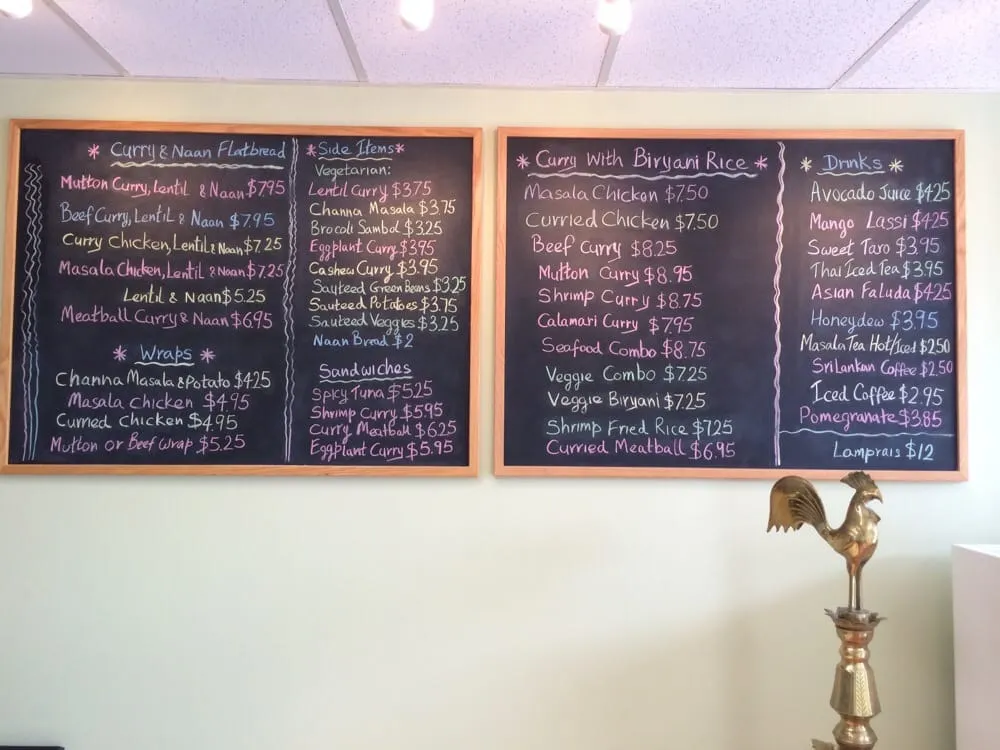 * Curry & Naan Flatbread
Mutton Curry, Lentil & Naan $7.95
Beef Curry, Lentil & Naan $7.95
Curry Chicken, Lentil & Naan $7.25
Masala Chicken, Lentil & Naan $7.25
Lentil & Naan $5.25
Meatball Curry & Naan $6.95
* Wraps *
Channa Masala & Potato $4.25
Masala Chicken $4.95
Curried Chicken $4.95
Mutton or Beef Wrap $5.25
* Side Items *
Vegetarian:
Lentil Curry $3.75
Channa Masala $3.75
Brocoli Sambol $3.25
Eggplant Curry $3.95
Cashew Curry $3.95
Sauteed Green Beans $3.25
Sauteed Potatoes $3.75
Sauteed Veggies $3.25
Naan Bread $2
Sandwiches
Spicy Tuna $5.25
Shrimp Curry $5.95
Curry Meatball $6.25
Eggplant Curry $5.95
* Curry With Biryani Rice *
Masala Chicken $7.50
Curried Chicken $7.50
Beef Curry $8.25
Mutton Curry $8.95
Shrimp Curry $8.75
Calamari Curry $7.95
Seafood Combo $8.75
Veggie Combo $7.25
Veggie Biryani $7.25
Shrimp Fried Rice $7.25
Curried Meatball $6.95
* Drinks *
Avocado Juice $4.25
Mango Lassi $4.25
Sweet Taro $3.95
Thai Iced Tea $3.95
Asian Faluda $4.25
Honeydew $3.95
Masala Tea Hot/Iced $2.50
Srilankan Coffee $2.50
Iced Coffee $2.95
Pomegranate $3.85
Lamprais $12